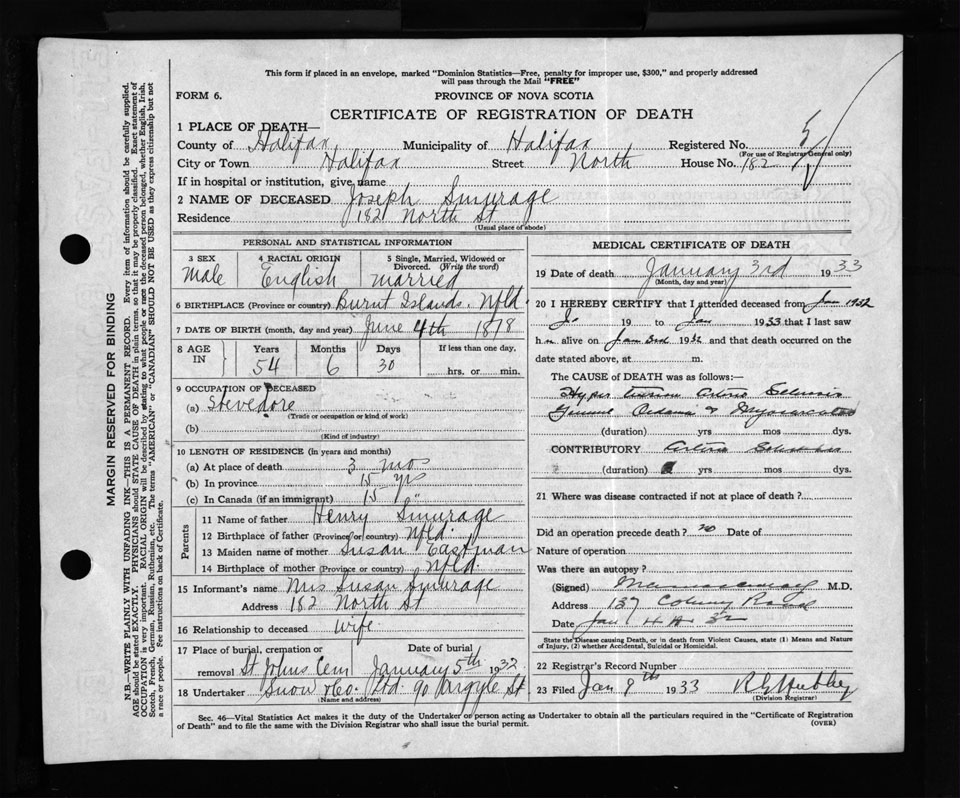 This form if placed in an envelope, marked "Dominion Statistics—Free, penalty for improper use, $300," and properly addressed
will pass through the Mail "FREE"
FORM 6.
PROVINCE OF NOVA SCOTIA
CERTIFICATE OF REGISTRATION OF DEATH
MARGIN RESERVED FOR BINDING
N.B.—WRITE PLAINLY WITH UNFADING INK—THIS IS A PERMANENT RECORD. Every item of information should be carefully supplied.
AGE should be stated EXACTLY. PHYSICIANS should STATE CAUSE OF DEATH in plain terms, so that it may be properly classified. Exact statement of
OCCUPATION is very important. RACIAL ORIGIN will be described by stating to what people or race the deceased person belonged, whether English, Irish,
Scotch, French, German, Russian, Ruthenian, etc. The terms "AMERICAN" or "CANADIAN" SHOULD NOT BE USED as they express citizenship but not
a race or people. Fee instructions on back of Certificate.
1 PLACE OF DEATH—
County of Halifax Municipality of Halifax Registered No. 5
(For use of Registrar General only)
City or Town Halifax Street North House No. 182
If in hospital or institution, give name
2 NAME OF DECEASED Joseph Smurage
Residence 182 North St
(Usual place of abode)
PERSONAL AND STATISTICAL INFORMATION
3 SEX 4 RACIAL ORIGIN 5 Single, Married, Widowed or Divorced. (Write the word)
Male English Married
6 BIRTHPLACE (Province or country) Burnt Islands. Nfld
7 DATE OF BIRTH (month, day and year) June 4th 1878
8 AGE IN Years Months Days If less than one day,
54 6 30 hrs. or min.
9 OCCUPATION OF DECEASED
(a) Stevedore
(Trade or occupation or kind of work)
(b)
(Kind of industry)
10 LENGTH OF RESIDENCE (in years and months)
(a) At place of death 3 mos
(b) In province 15 yrs
(c) In Canada (if an immigrant) 15 "
Parents
11 Name of father Henry Smurage
12 Birthplace of father (Province or country) Nfld.
13 Maiden name of mother Susan Eastman
14 Birthplace of mother (Province or country) Nfld.
15 Informant's name Mrs Susan Smurage
Address 182 North St
16 Relationship to deceased Wife
17 Place of burial, cremation or removal Date of burial
St Johns Cem January 5th 1932
18 Undertaker Snow & Co. Ltd. 90 Argyle St
(Name and address)
MEDICAL CERTIFICATE OF DEATH
19 Date of death January 3rd 1933
(Month, day and year)
20 I HEREBY CERTIFY that I attended deceased from Jan 1932
19 to Jan 1933 that I last saw
h m alive on Jan 3rd 1932 and that death occurred on the
date stated above, at m.
The CAUSE of DEATH was as follows:—
Hyper tension Arterio Sclerosis
General Oedema & Myocarditis
(duration) yrs mos dys.
CONTRIBUTORY Arterio Sclerosis
(duration) yrs mos dys.
21 Where was disease contracted if not at place of death?
Did an operation precede death? no Date of
Nature of operation
Was there an autopsy?
(Signed) M.D.
Address 137
Date Jan 4th 32
State the Disease causing Death, or in death from Violent Causes, state (1) Means and Nature
of Injury, (2) whether Accidental, Suicidal or Homicidal.
22 Registrar's Record Number
23 Filed Jan 9th 1933
(Division Registrar)
Sec. 46—Vital Statistics Act makes it the duty of the Undertaker or person acting as Undertaker to obtain all the particulars required in the "Certificate of Registration
of Death" and to file the same with the Division Registrar who shall issue the burial permit.
(OVER)